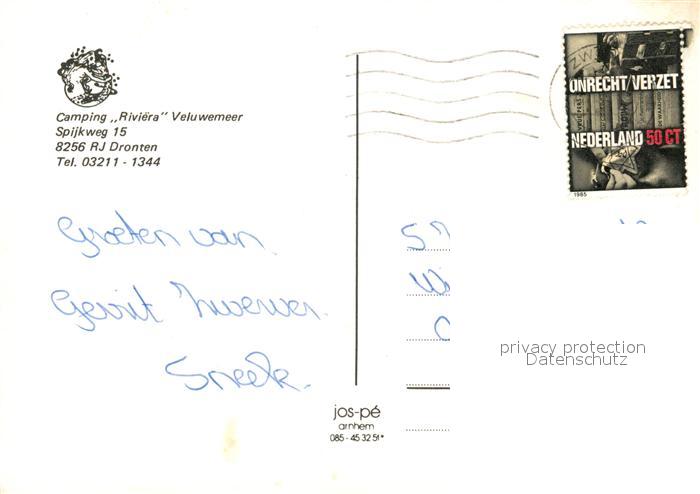 Camping ,,Riviëra" Veluwemeer
Spijkweg 15
8256 RJ Dronten
Tel. 03211 - 1344
Groeten van
Gerrit Zwerver.
Sneek.
ONRECHT/VERZET
NEDERLAND 50 CT
1985
privacy protection
Datenschutz
jos-pé
arnhem
085 - 45 32 51*